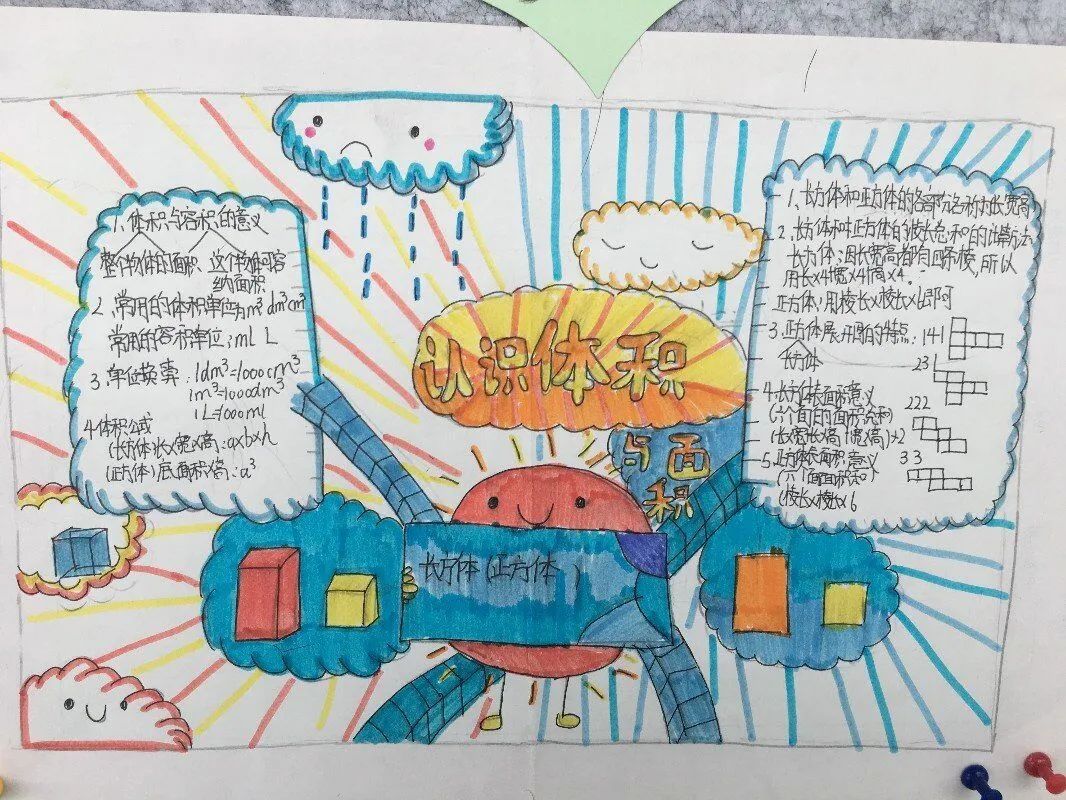 认识体积
与面积
1、体积与容积的意义
整个物体的面积 这个物体可容
纳面积
2、常用的体积单位有m³ dm³ cm³
常用的容积单位:ml L
3、单位换算:1dm³=1000cm³
1m³=1000dm³
1L=1000ml
4体积公式
(长方体)长×宽×高:a×b×h
(正方体)底面积×高:a³
长方体(正方体)
1、长方体和正方体的各部分名称为长宽高
2、长方体和正方体的棱长总和的计算方法
长方体:因长宽高都有四条棱,所以
用长×4宽×4高×4.
正方体:用棱长×棱长×6即可
3、正方体展开图的特点:141
长方体 231
222
33
4、长方体表面积意义
(六个面的面积总和)
(长×宽+长×高+宽×高)×2
5、正方体表面积意义
(六个面面积总和)
(棱长×棱长×6